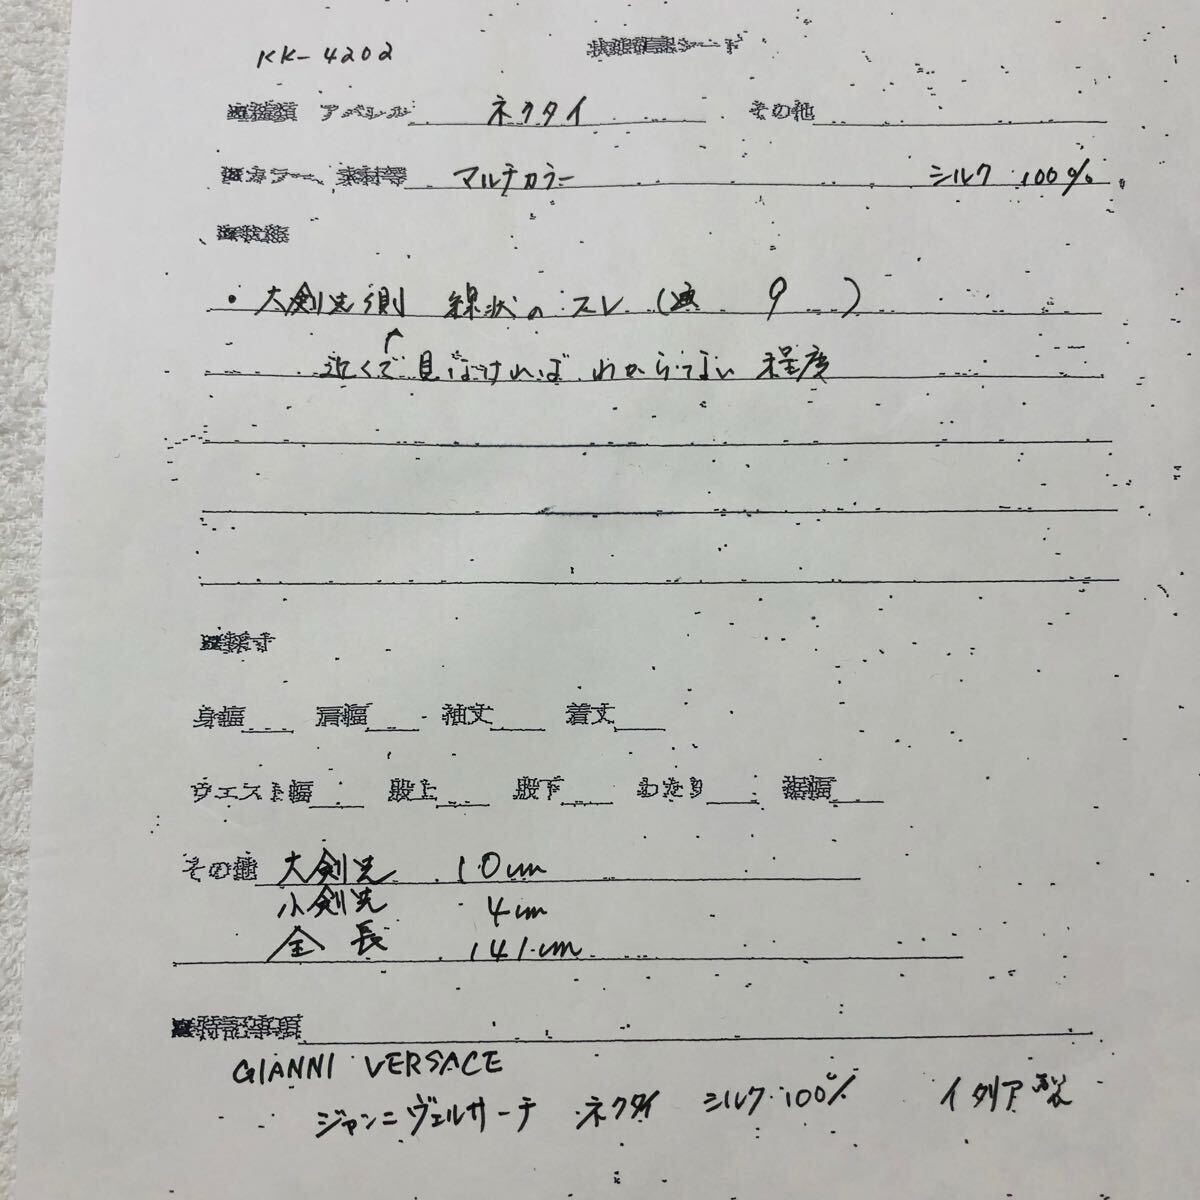 KK-4202 状態確認シート
■種類 アパレル ネクタイ その他
■カラー、素材等 マルチカラー シルク 100%
■状態
・大剣先側 線状のスレ(画 9 )
近くで見なければわからない程度
■採寸
身幅 肩幅 袖丈 着丈
ウエスト幅 股上 股下 わたり 裾幅
その他 大剣先 10cm
小剣先 4cm
全長 141cm
■特記事項
GIANNI VERSACE
ジャンニヴェルサーチ ネクタイ シルク100% イタリア製